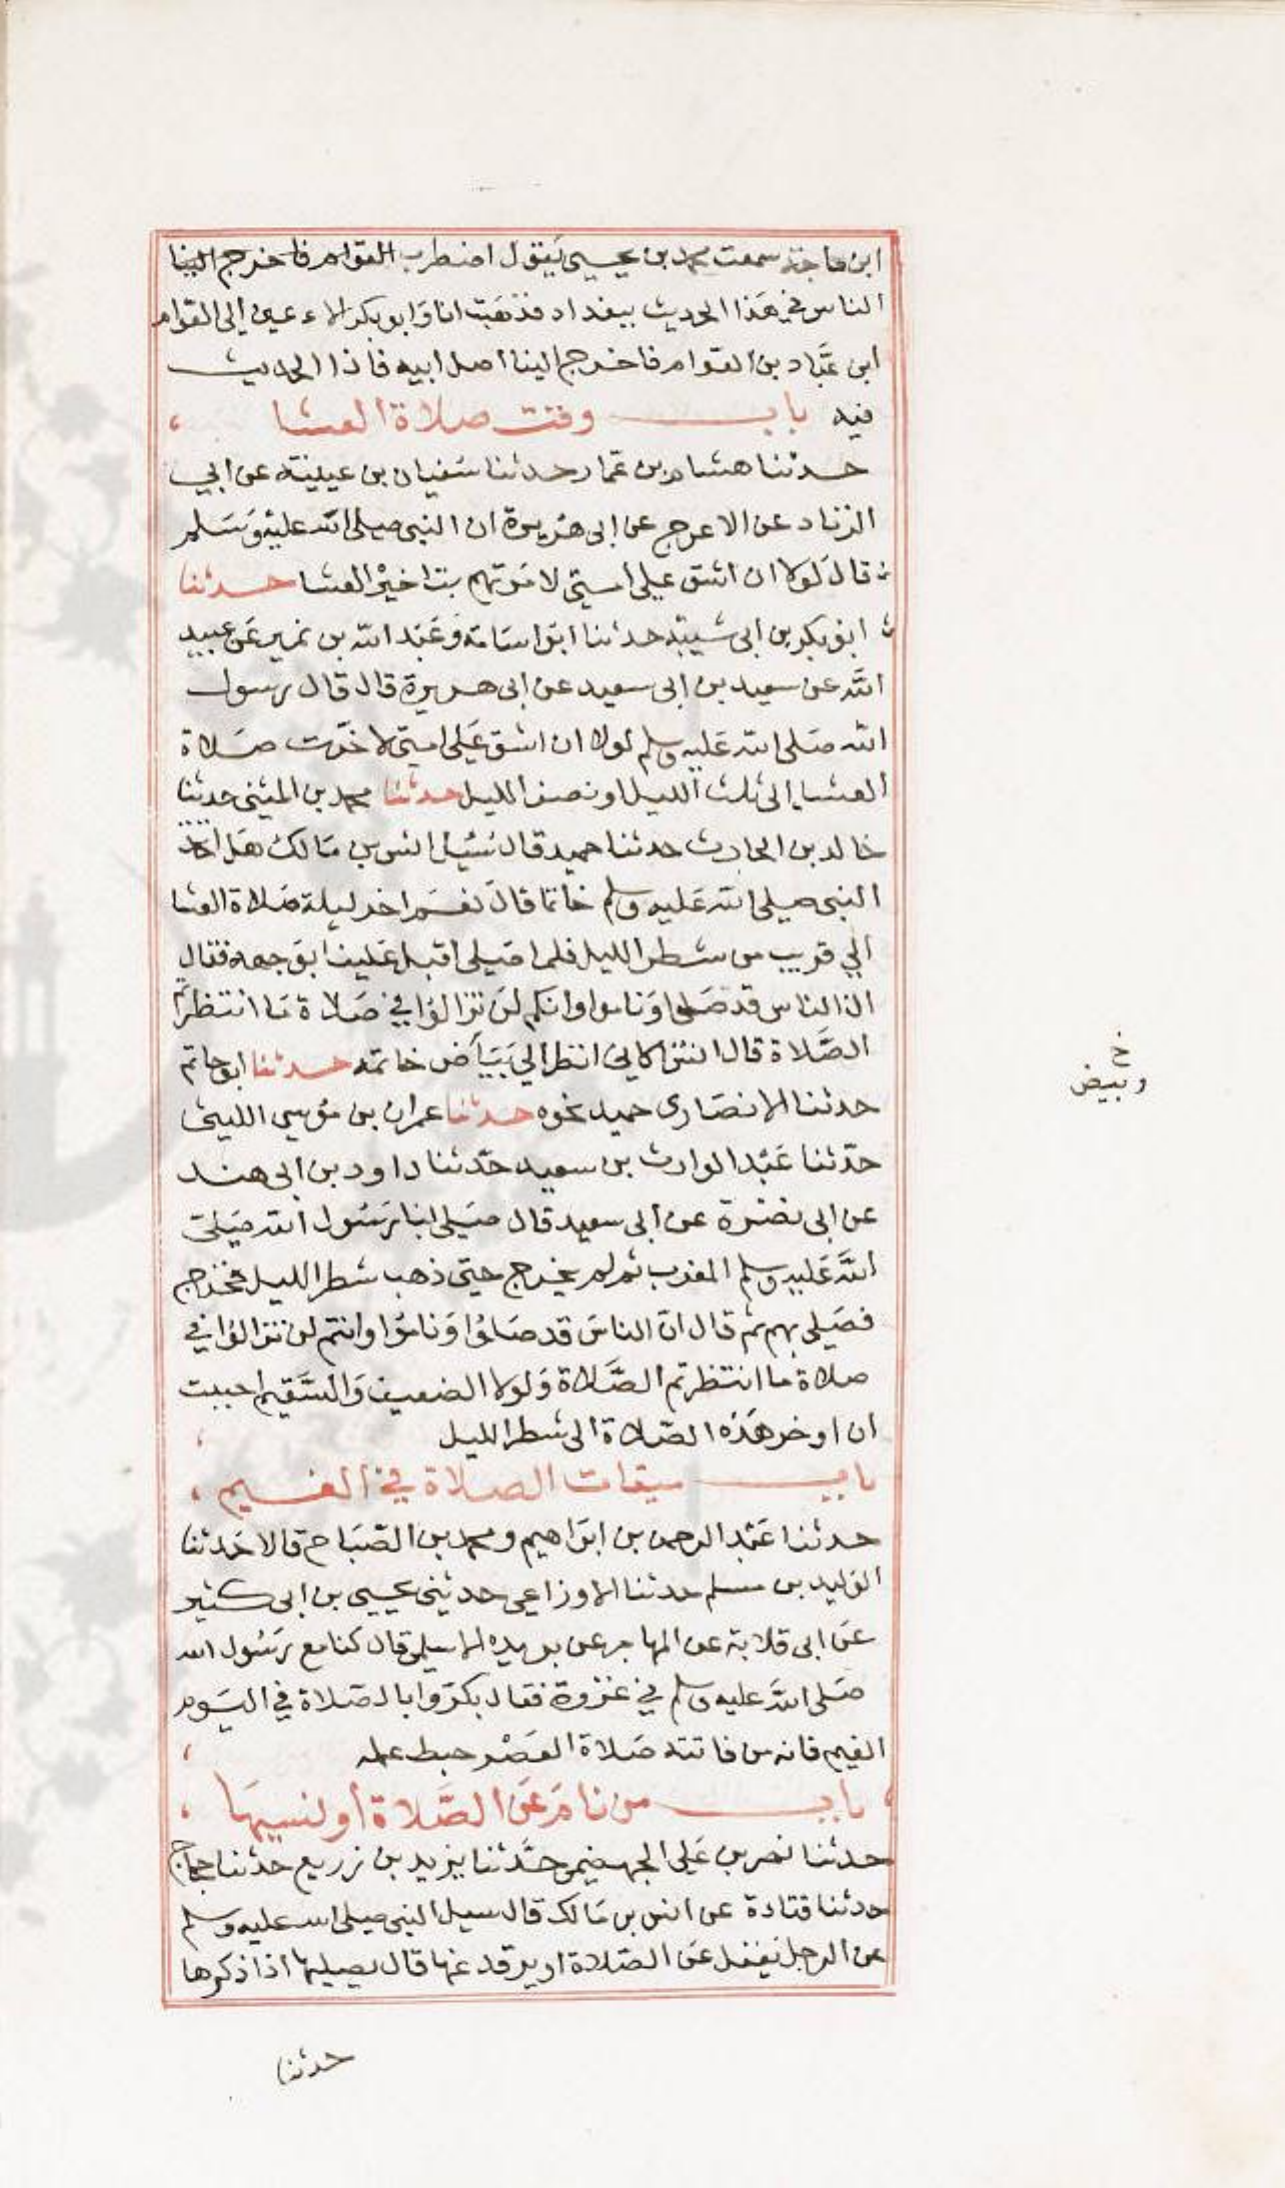 ابن ماجة سمعت محمد بن يحيى يقول اضطرب القوام فاخرج الينا
الناس في هذا الحديث ببغداد فذهبت انا وابو بكر الاعين إلى القوام
ابن عباد بن القوام فاخرج الينا اصل ابيه فاذا الحديث
فيه باب وقت صلاة العشا
حدثنا هشام بن عمار حدثنا سفيان بن عيينة عن ابي
الزناد عن الاعرج عن ابى هريرة ان النبي صلى الله عليه وسلم
قال لولا ان اشق على امتي لامرتهم بتاخير العشا حدثنا
ابو بكر بن ابى شيبة حدثنا ابو اسامة وعبد الله بن نمير عن عبيد
الله عن سعيد بن ابى سعيد عن ابى هريرة قال قال رسول
الله صلى الله عليه وسلم لولا ان اشق على امتي لاخرت صلاة
العشا إلى ثلث الليل او نصف الليل حدثنا محمد بن المثنى حدثنا
خالد بن الحارث حدثنا حميد قال سئل انس بن مالك هل اتخذ
النبي صلى الله عليه وسلم خاتما قال نعم اخر ليلة صلاة العشا
الي قريب من شطر الليل فلما صلى اقبل علينا بوجهه فقال
ان الناس قد صلوا وناموا وانكم لن تزالوا في صلاة ما انتظرتم
الصلاة قال انس كاني انظر الي بياض خاتمه حدثنا ابو حاتم
حدثنا الانصارى حميد نحوه حدثنا عمران بن موسى الليثى
حدثنا عبد الوارث بن سعيد حدثنا داود بن ابى هند
عن ابى نضرة عن ابى سعيد قال صلى بنا رسول الله صلى
الله عليه وسلم المغرب ثم لم يخرج حتى ذهب شطر الليل فخرج
فصلى بهم ثم قال ان الناس قد صلوا وناموا وانتم لن تزالوا في
صلاة ما انتظرتم الصلاة ولولا الضعيف والسقيم احببت
ان اوخر هذه الصلاة الى شطر الليل
باب ميقات الصلاة في الغيم
حدثنا عبد الرحمن بن ابراهيم ومحمد بن الصباح قالا حدثنا
الوليد بن مسلم حدثنا الاوزاعي حدثنى يحيى بن ابى كثير
عن ابى قلابة عن المهاجر عن بريده الاسلمى قال كنا مع رسول الله
صلى الله عليه وسلم في غزوة فقال بكروا بالصلاة في اليوم
الغيم فانه من فاتته صلاة العصر حبط عمله
باب من نام عن الصلاة أو نسيها
حدثنا نصر بن على الجهضمى حدثنا يزيد بن زريع حدثنا حجاج
حدثنا قتادة عن انس بن مالك قال سيل النبي صلى الله عليه وسلم
عن الرجل يغفل عن الصلاة او يرقد عنها قال يصليها اذا ذكرها
خ
وبيض
حدثنا